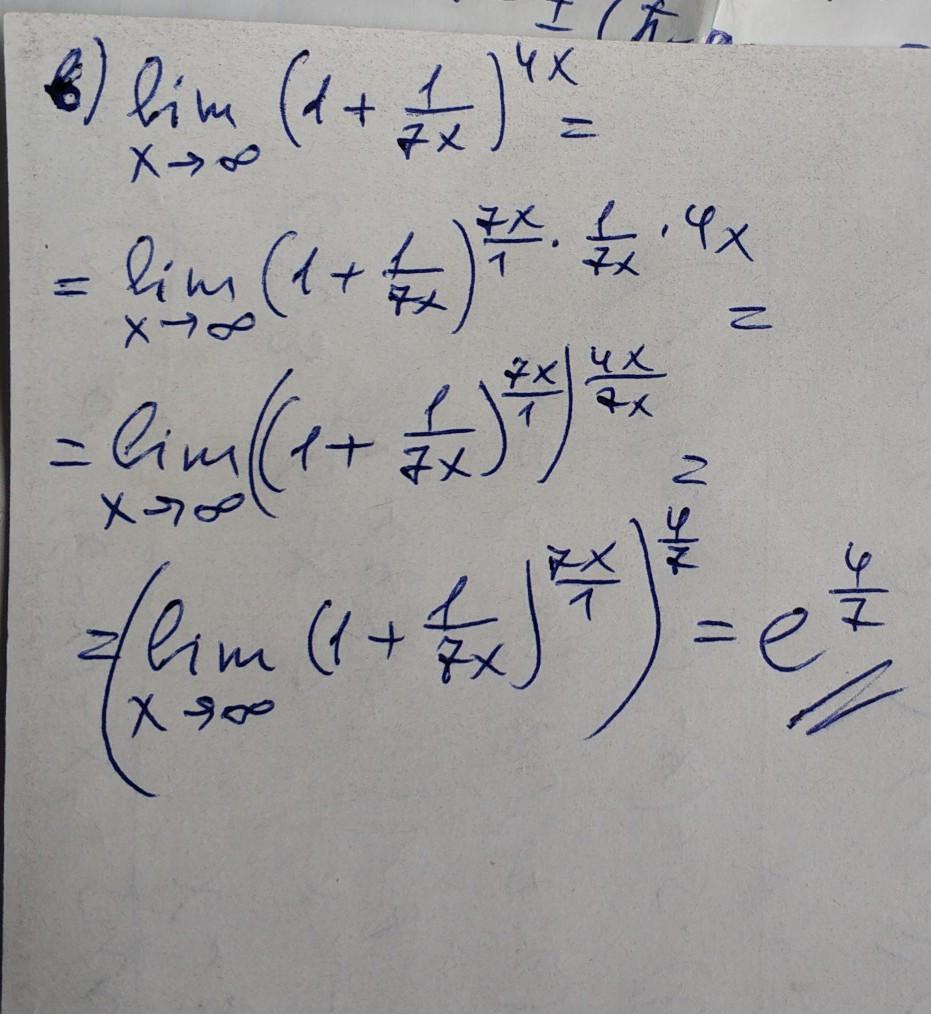 в) lim x→∞ (1 + 1/7x)^4x =
= lim x→∞ (1 + 1/7x)^7x/1 · 1/7x · 4x =
= lim x→∞ ((1 + 1/7x)^7x/1)^4x/7x =
= (lim x→∞ (1 + 1/7x)^7x/1)^4/7 = e^4/7